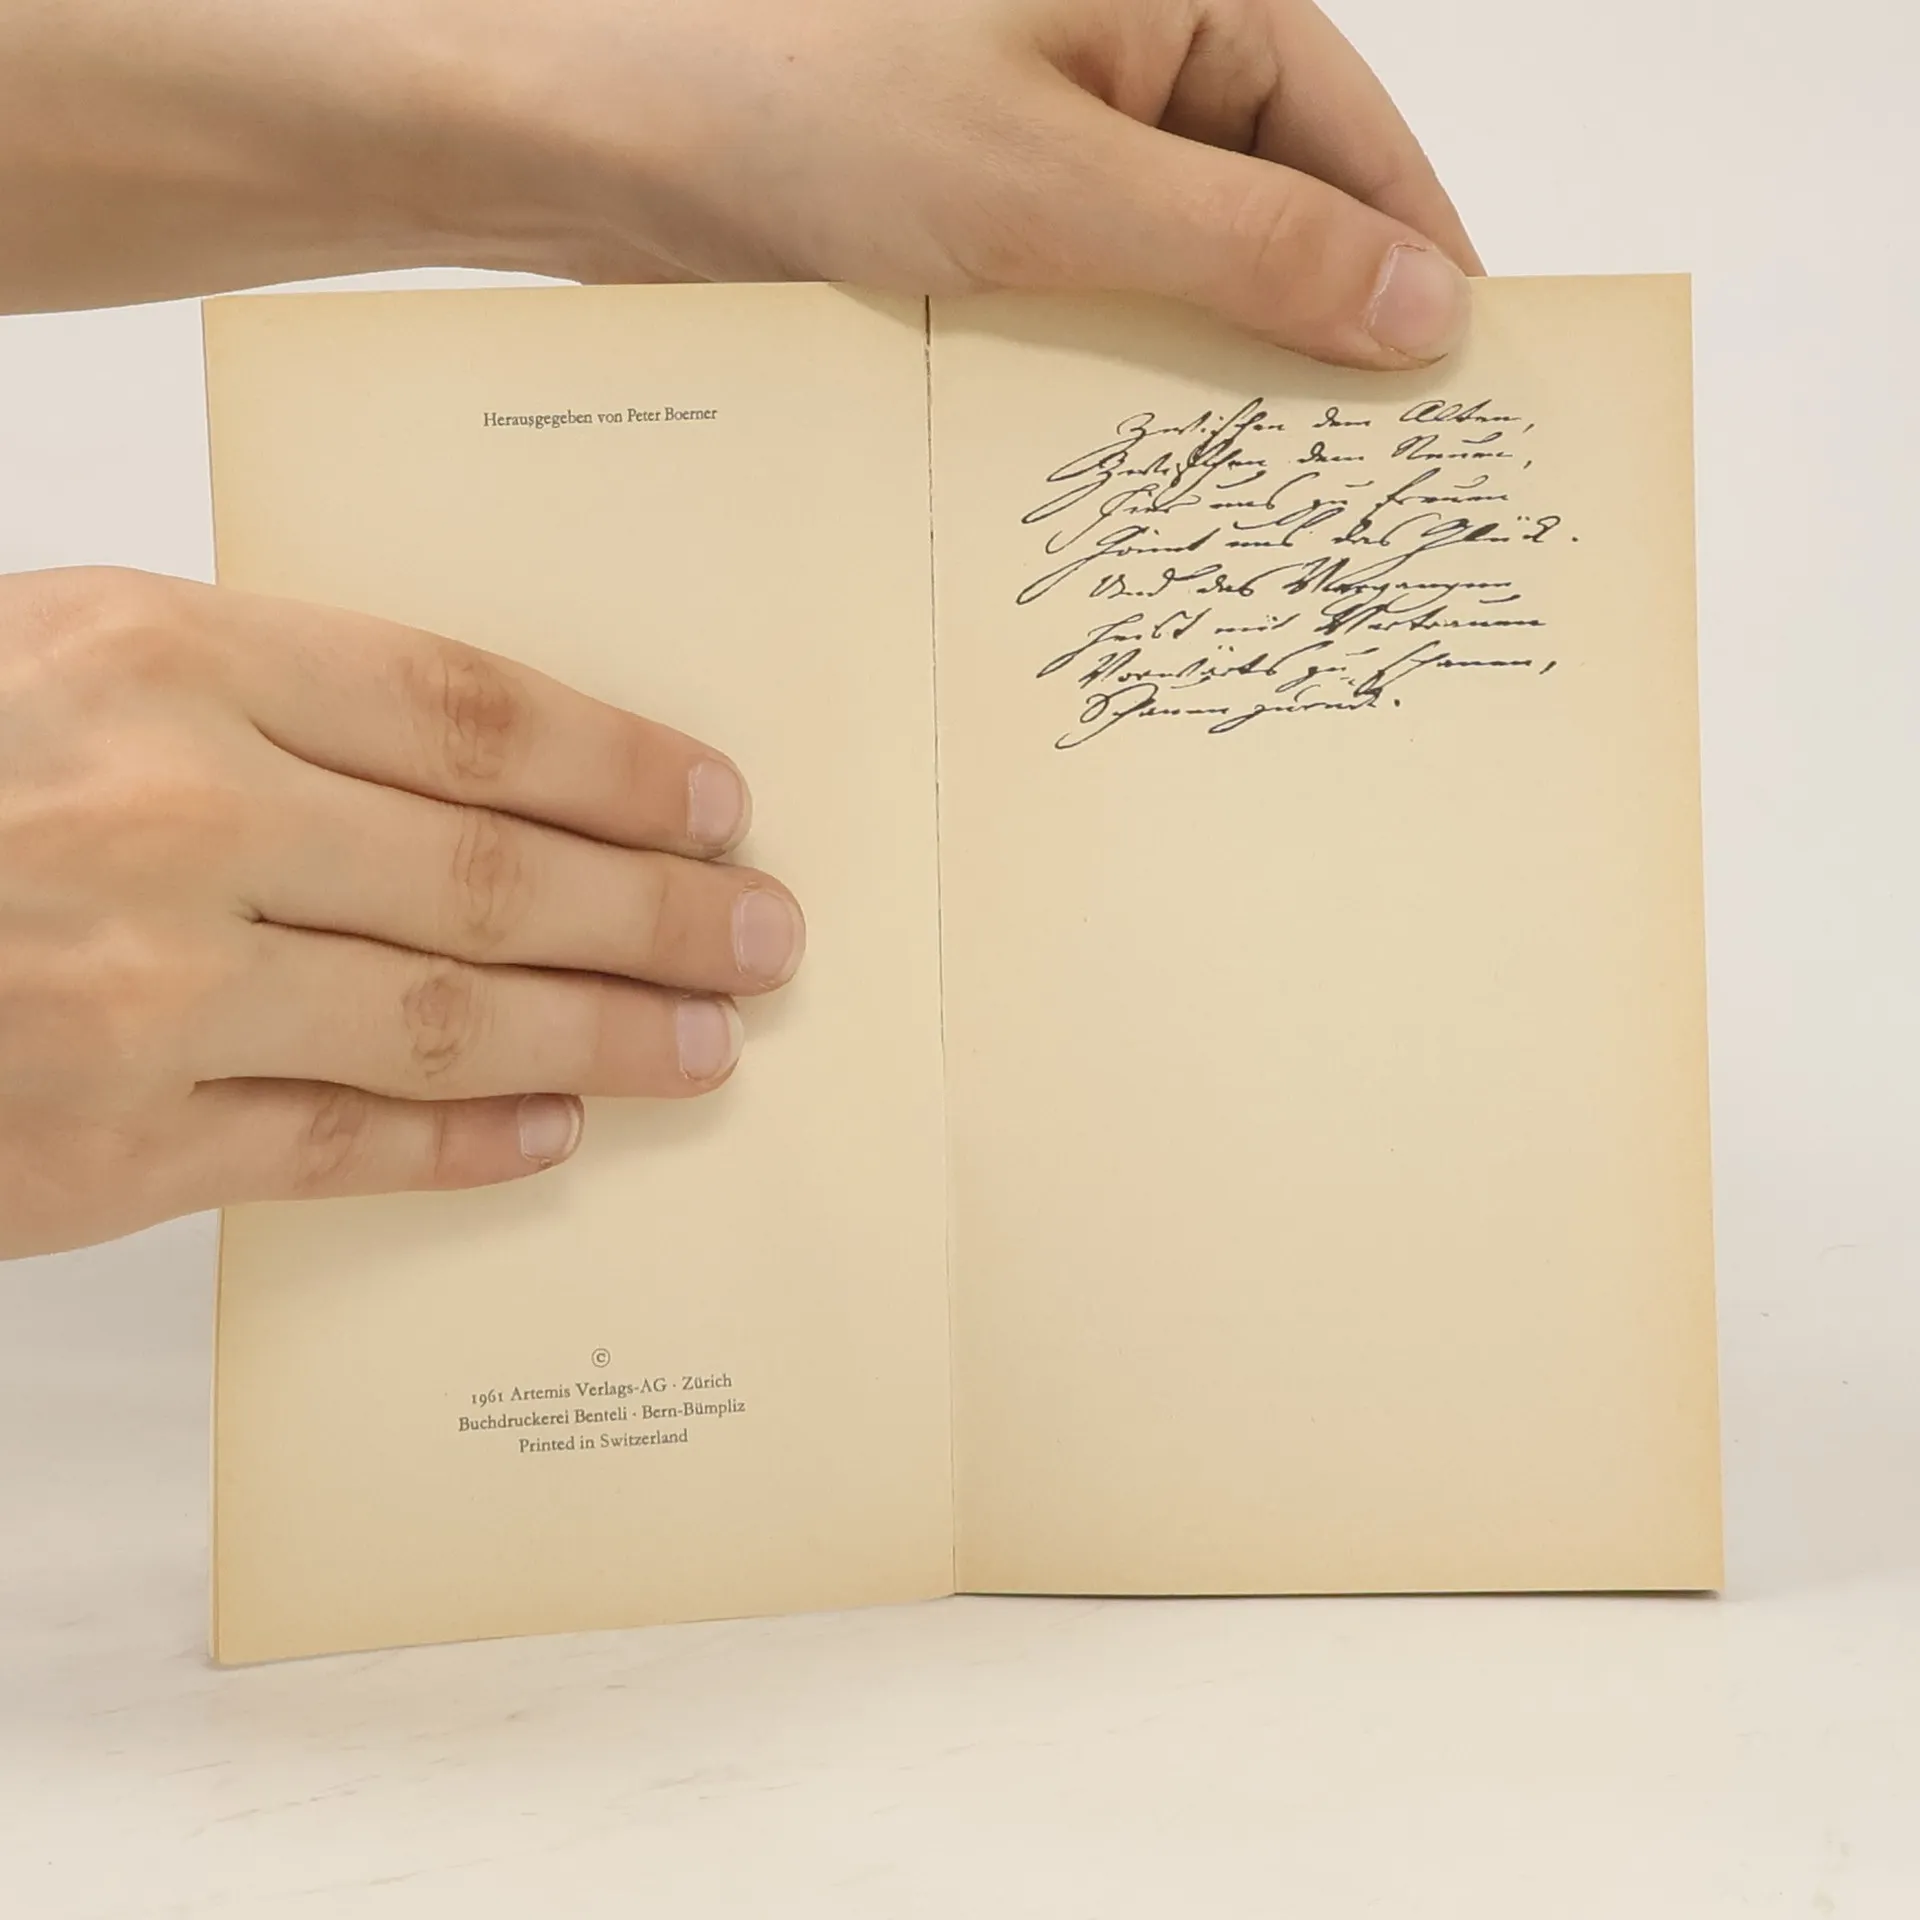 Herausgegeben von Peter Boerner
©
1961 Artemis Verlags-AG · Zürich
Buchdruckerei Benteli · Bern-Bümpliz
Printed in Switzerland
Zwischen dem Alten,
Zwischen dem Neuen,
Hier uns zu freuen
Gönnt uns das Glück.
Und das Vergangene
Heist mit Vertrauen
Vorwärts zu schauen,
Schauen zurück.